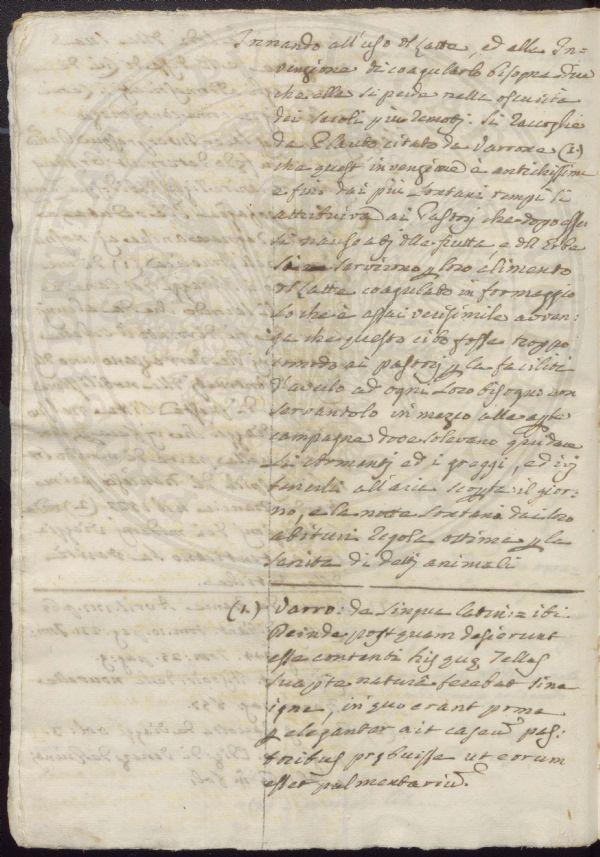 Innando all'uso del Latte, ed alla In=
venzione di coagularlo bisogna dire
che ella si perde nella oscurità
dei secoli più remoti. Si raccoglie
da Plauto citato da Varrone (1.)
che quest' invenzione è antichissima
e fino dai più lontani tempi si
attribuiva ai Pastorj che dopo esser
si delle frutta e dell'Erbe
si servirono p loro alimento
del Latte coagulato in formaggio
Lo che è assai verisimile avven=
ga che questo cibo fosse troppo
comodo ai pastorj p la facilità
d'averlo ad ogni loro bisogno con
servandolo in mezzo alle aperte
campagne dove solevano guidare
gli Armentj ed i greggi, ed ivi
tenerli all'aria scoperta il gior=
no, e la notte lontani dai loro
abituri regola ottima p la
sanità di dettj animali
(1.) Varro: de lingua latin: = ibi.
Deinde postquam desierunt
esse contenti his quę Tellus
suapte naturâ ferebat sine
igne, in quo erant poma
p eleganter ait caseũ pas:
toribus prębuisse ut eorum
esset pulmentariũ.